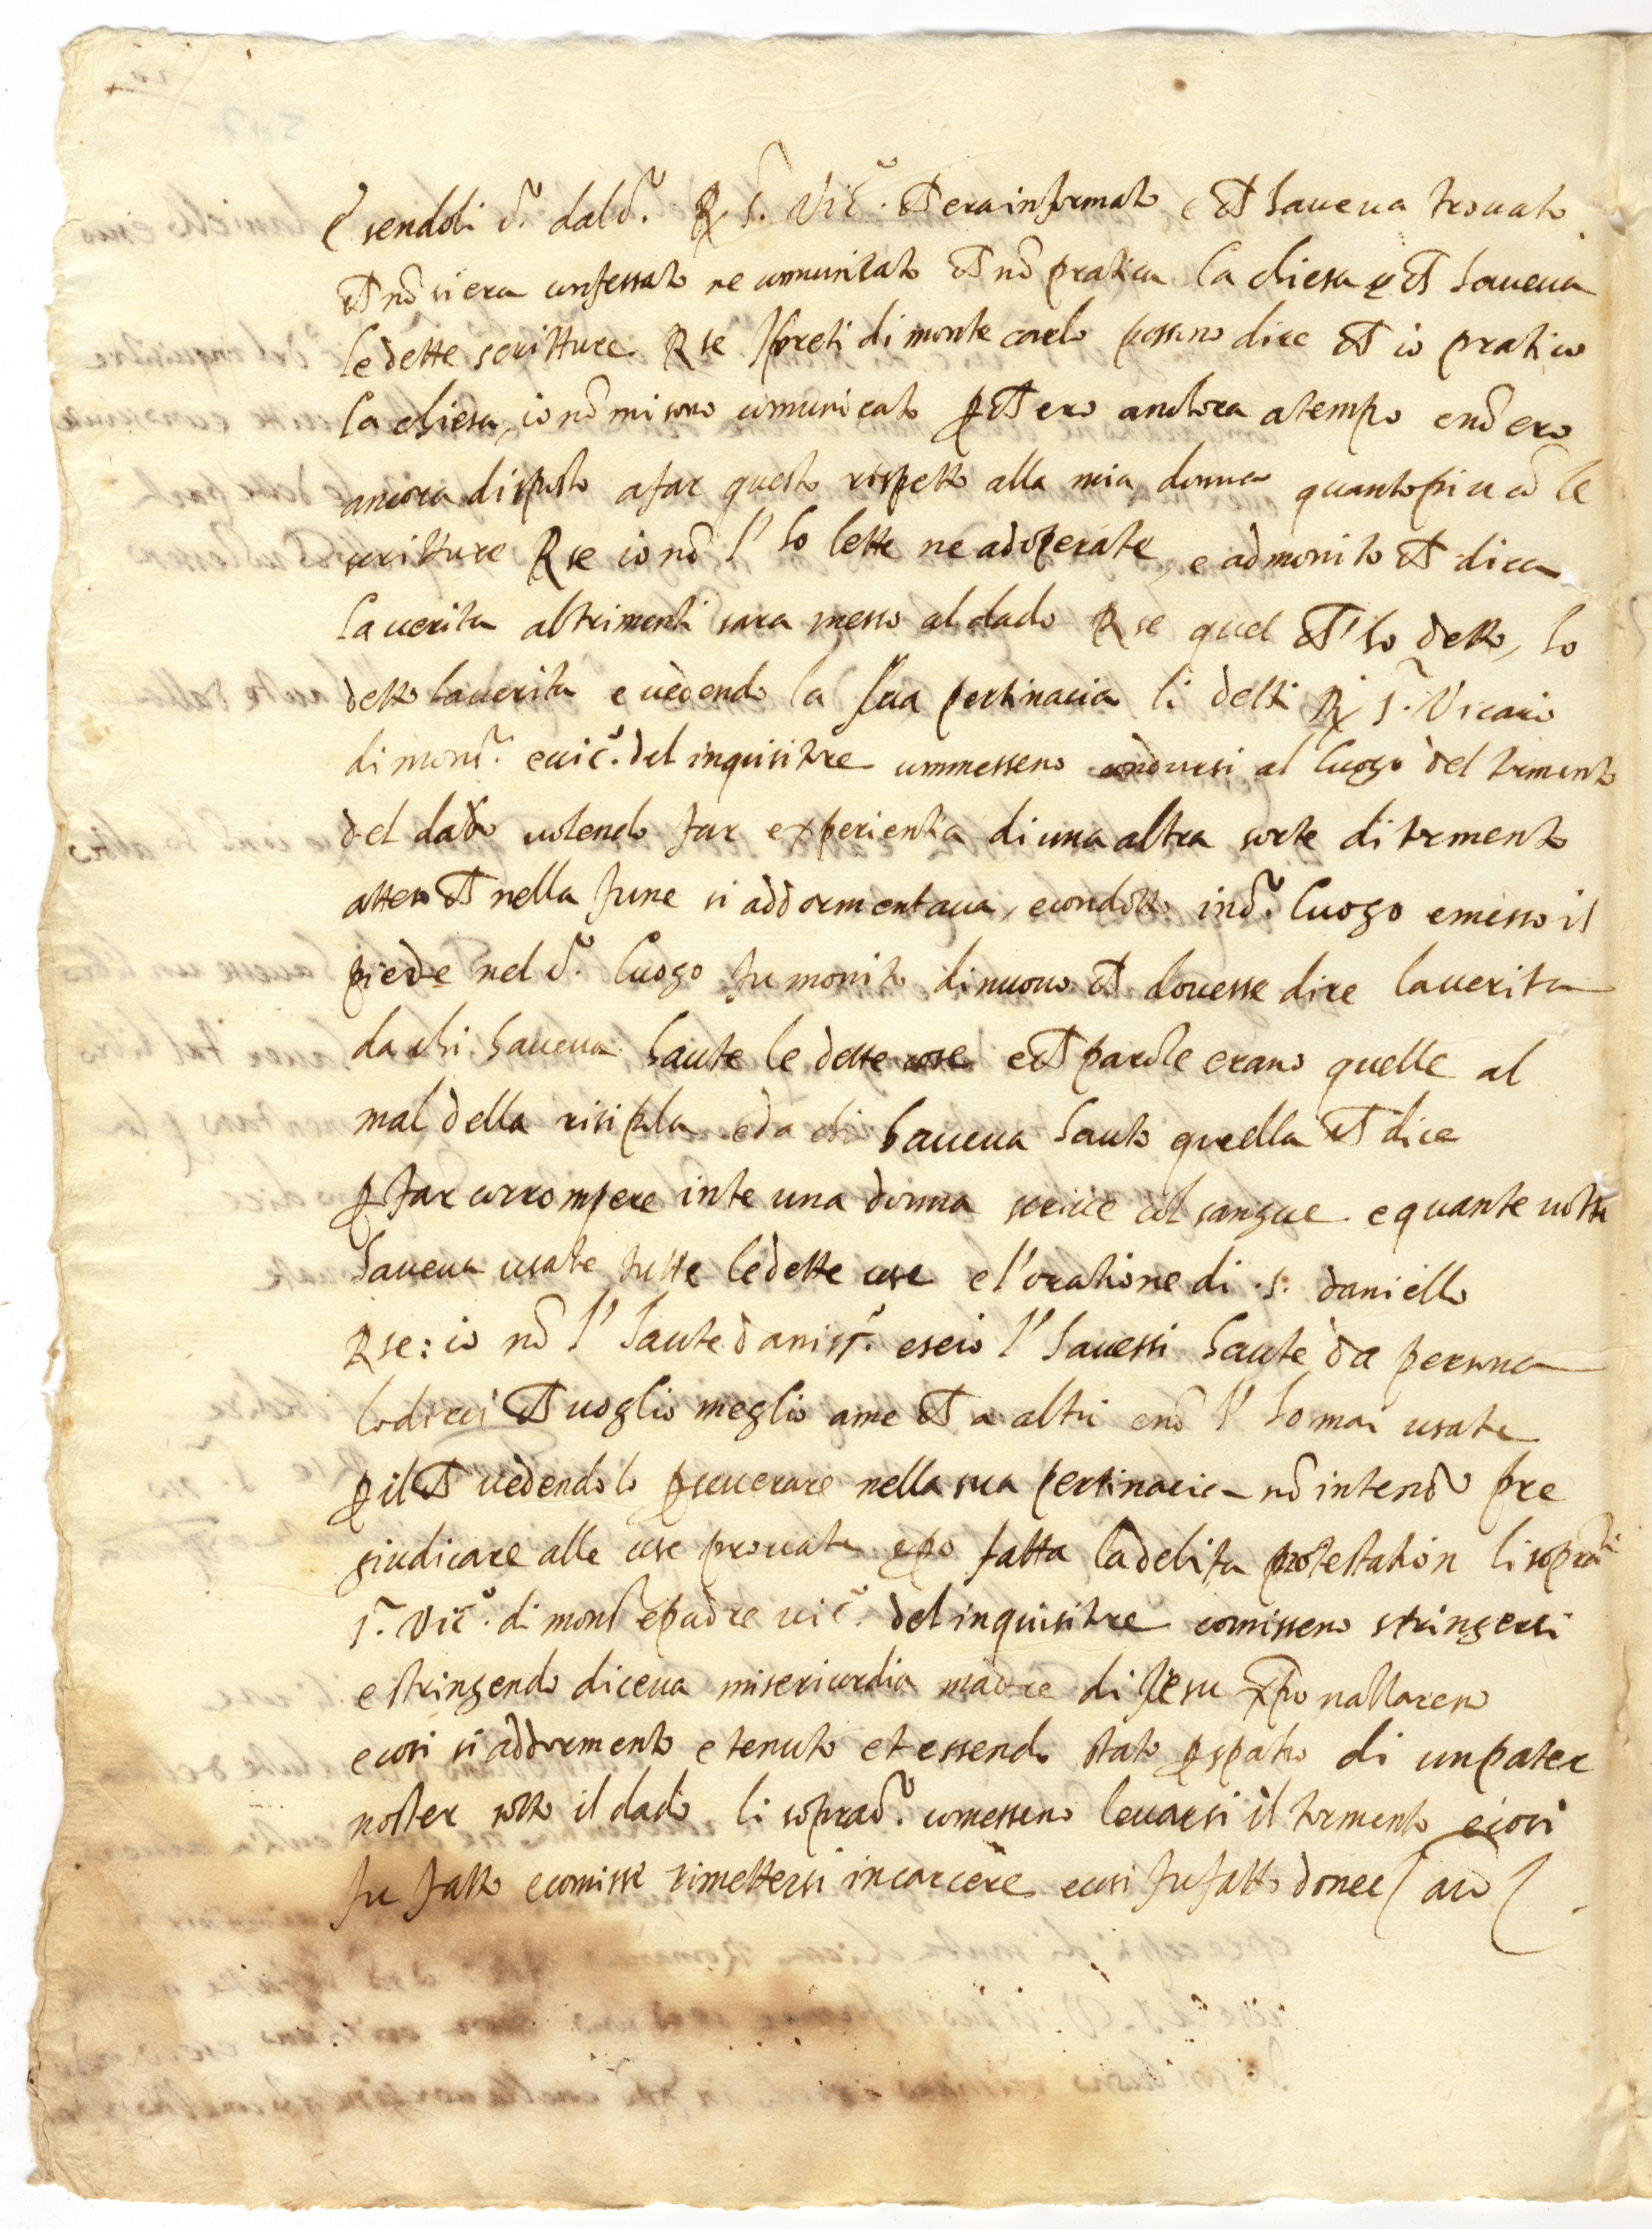 E sendoli d.o dal d.o R S.r Vic.o ch era informato e ch haveva trovato
ch nō si era confessato ne comunicato ch nō pratica la chiesa e ch haveva
le dette scritture Rse Ipreti di monte carlo possono dire ch io pratico
la chiesa, io nō mi sono comunicato p ch ero anchora atempo e nō ero
ancora disposto afar questo rispetto alla mia donna quantopiu cō le
scritture Rse io nō l' ho lette ne adoperate, e admonito ch dica
la verita altrimenti sara messo al dado Rse quel ch' ho detto, ho
detto laverita e vedendo la sua pertinacia li detti R S.r Vicario
di mons.r e vic.o del inquisitore commesseno condursi al luogo del tormento
del dado volendo far experientia di una altra sorte di tormento
atteso ch nella fune si addormentava, econdotto in d.o luogo emesso il
piede nel d.o luogo fu monito dinuovo ch dovesse dire laverita
da chi haveva haute le dette cose e ch parole erano quelle al
mal della risipola eda chi haveva hauto quella ch dice
p far corrompere inte una donna scrive col sangue e quante volte
haveva usate tutte ledette cose e l'oratione di .s. daniello
Rse: io nō l' haute daniss.o eseio l' havessi haute da persona
lodirei ch voglio meglio ame ch a altri e nō l' ho mai usate
p il ch vedendolo pseverare nella sua pertinacia nō intendo pre
giudicare alle cose provate epo fatta ladebita protestation li soprad.ti
S.r Vic.o di mons.r epadre vic.o del inquisitore comisseno stringersi
estringendo diceva misericordia madre di Jesu xpo nallareno
ecosi si addormento e tenuto et essendo stato p spatio di unpater
noster sotto il dado li soprad.i comesseno levarsi il tormento ecosi
fu fatto ecomisse rimettersi incarcere ecosi fu fatto donec